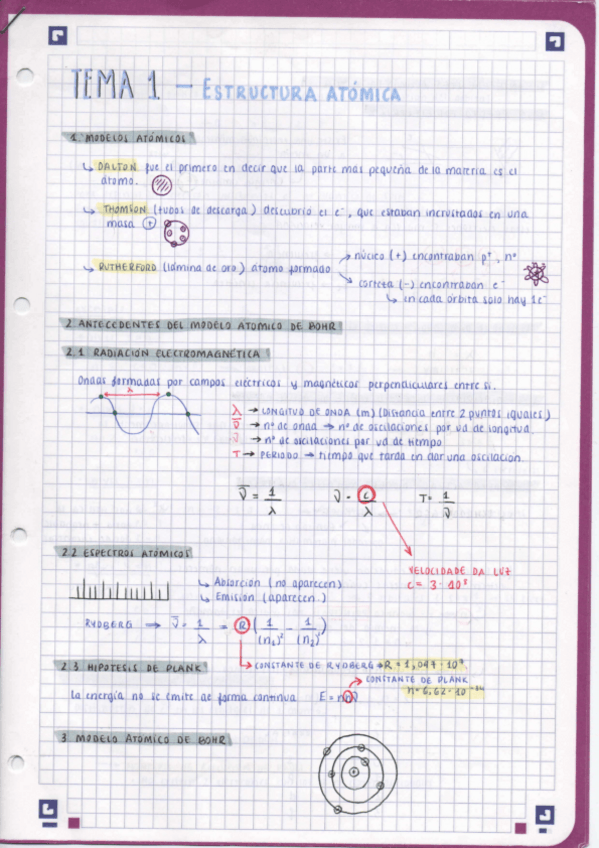 TEMA 1 - ESTRUCTURA ATÓMICA
1. MODELOS ATÓMICOS
↳ DALTON fue el primero en decir que la parte más pequeña de la materia es el
átomo.
↳ THOMSON (tubos de descarga) descubrió el e⁻, que estaban incrustados en una
masa (+)
→ núcleo (+) encontraban p⁺, nº
↳ RUTHERFORD (lámina de oro) átomo formado
→ corteza (-) encontraban e⁻
↳ en cada órbita solo hay 1e⁻
2. ANTECEDENTES DEL MODELO ATÓMICO DE BOHR
2.1 RADIACIÓN ELECTROMAGNÉTICA
Ondas formadas por campos eléctricos y magnéticos perpendiculares entre si.
λ
λ → LONGITUD DE ONDA (m) (Distancia entre 2 puntos iguales)
ν̄ → nº de onda → nº de oscilaciones por ud de longitud.
ν → nº de oscilaciones por ud de tiempo
T → PERIODO → tiempo que tarda en dar una oscilación.
ν̄ = 1/λ ν = c/λ T = 1/ν
VELOCIDADE DA LUZ
c = 3·10⁸
2.2 ESPECTROS ATÓMICOS
↳ Absorción (no aparecen)
↳ Emisión (aparecen)
RYDBERG → ν̄ = 1/λ = R (1/(n₁)² - 1/(n₂)²)
→ CONSTANTE DE RYDBERG → R = 1,097·10⁷
2.3 HIPÓTESIS DE PLANK
→ CONSTANTE DE PLANK
h = 6,62·10⁻³⁴
La energía no se emite de forma continua E = nhν
3. MODELO ATÓMICO DE BOHR